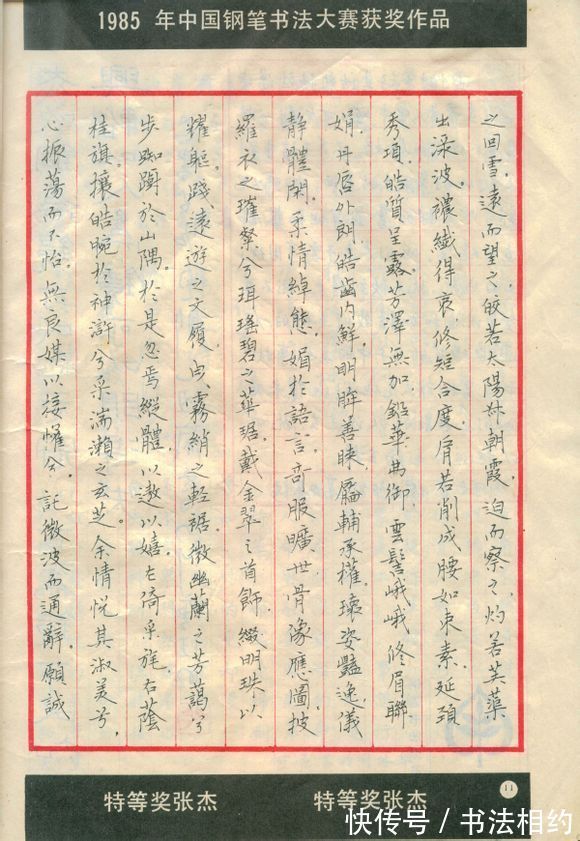 1985 年中国钢笔书法大赛获奖作品
之回雪。遠而望之，皎若太陽升朝霞，迫而察之，灼若芙蕖
出渌波。襛纖得衷，修短合度，肩若削成，腰如束素。延頸
秀項，皓質呈露，芳澤無加，鉛華弗御，雲髻峨峨，修眉聯
娟，丹唇外朗，皓齒内鮮，明眸善睞，靨輔承權，瓌姿豔逸，儀
静體閑。柔情綽態，媚於語言。奇服曠世，骨像應圖，披
羅衣之璀粲兮，珥瑶碧之華琚，戴金翠之首飾，綴明珠以
耀軀，踐遠遊之文履，曳霧綃之輕裾，微幽蘭之芳藹兮
步踟躕於山隅。於是忽焉縱體，以遨以嬉，左倚采旄，右蔭
桂旗。攘皓腕於神滸兮，采湍瀨之玄芝。余情悦其淑美兮，
心振蕩而不怡。無良媒以接懽兮，託微波而通辭。願誠
特等奖张杰 特等奖张杰
11
快传号／书法相约